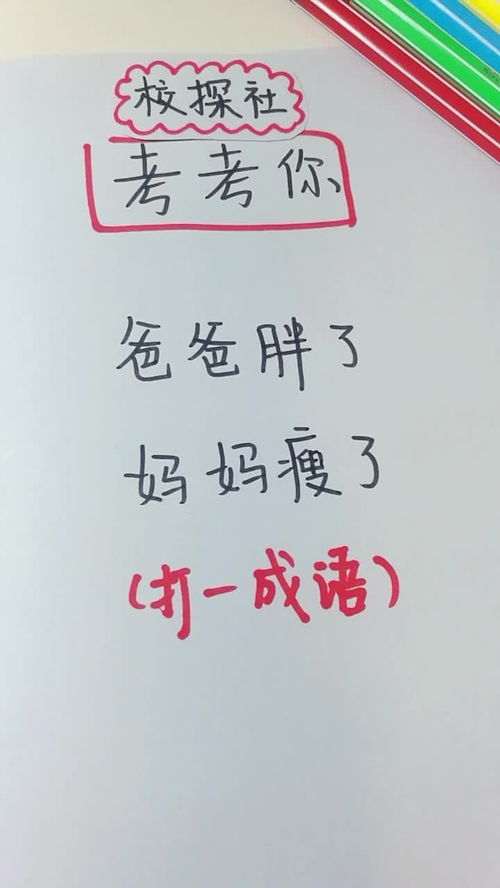 校探社
考考你
爸爸胖了
妈妈瘦了
(打一成语)